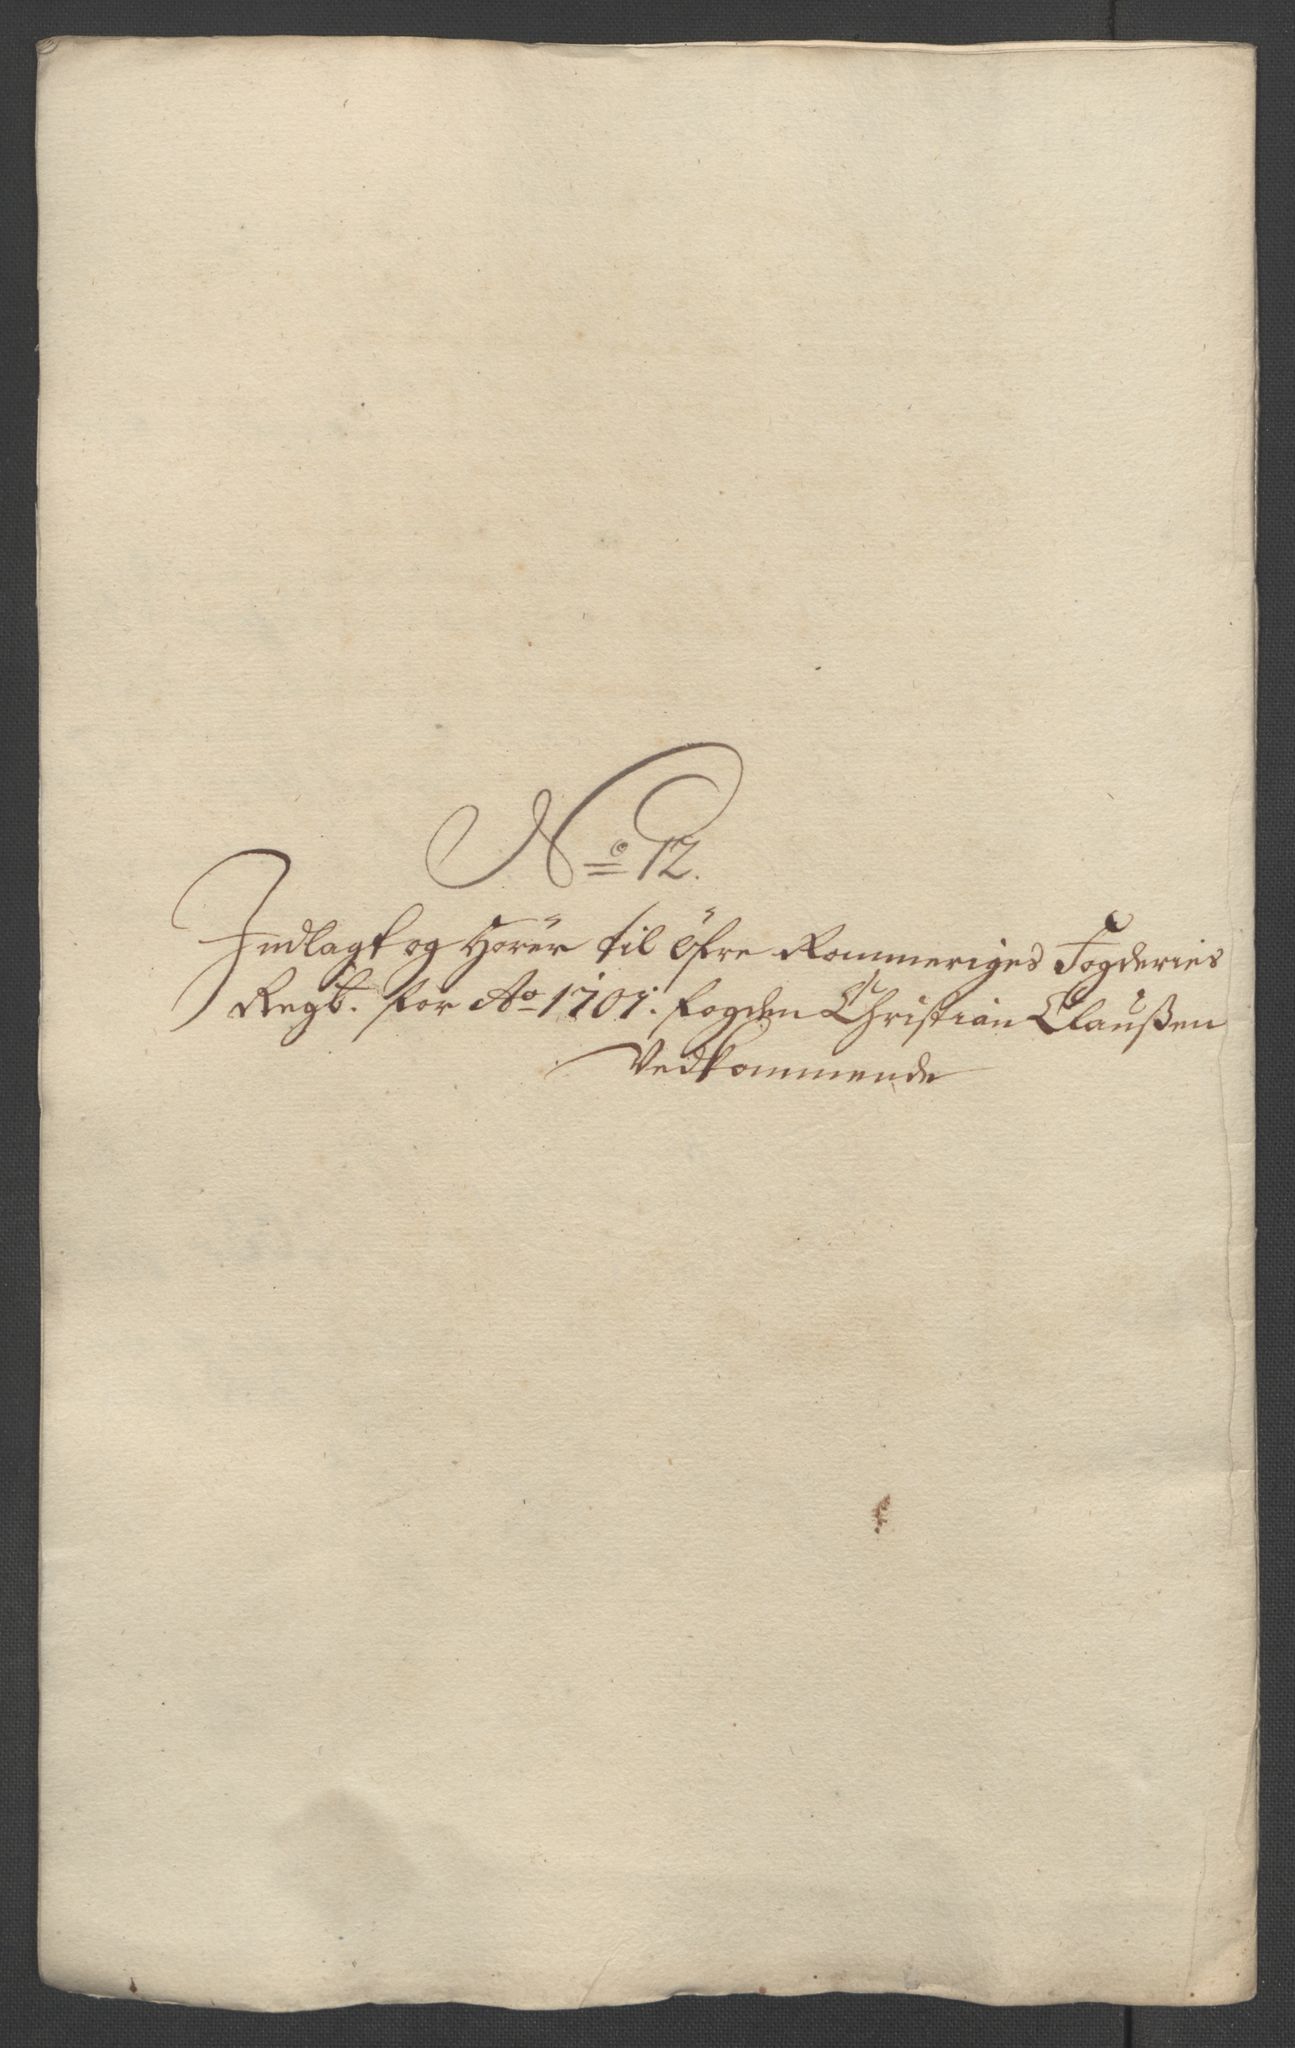 No 12.
Indlagt og Hörer til öfre Rommeriges Fogderies
Regb. for Ao 1707. fogden Christian Claußen
Vedkommende